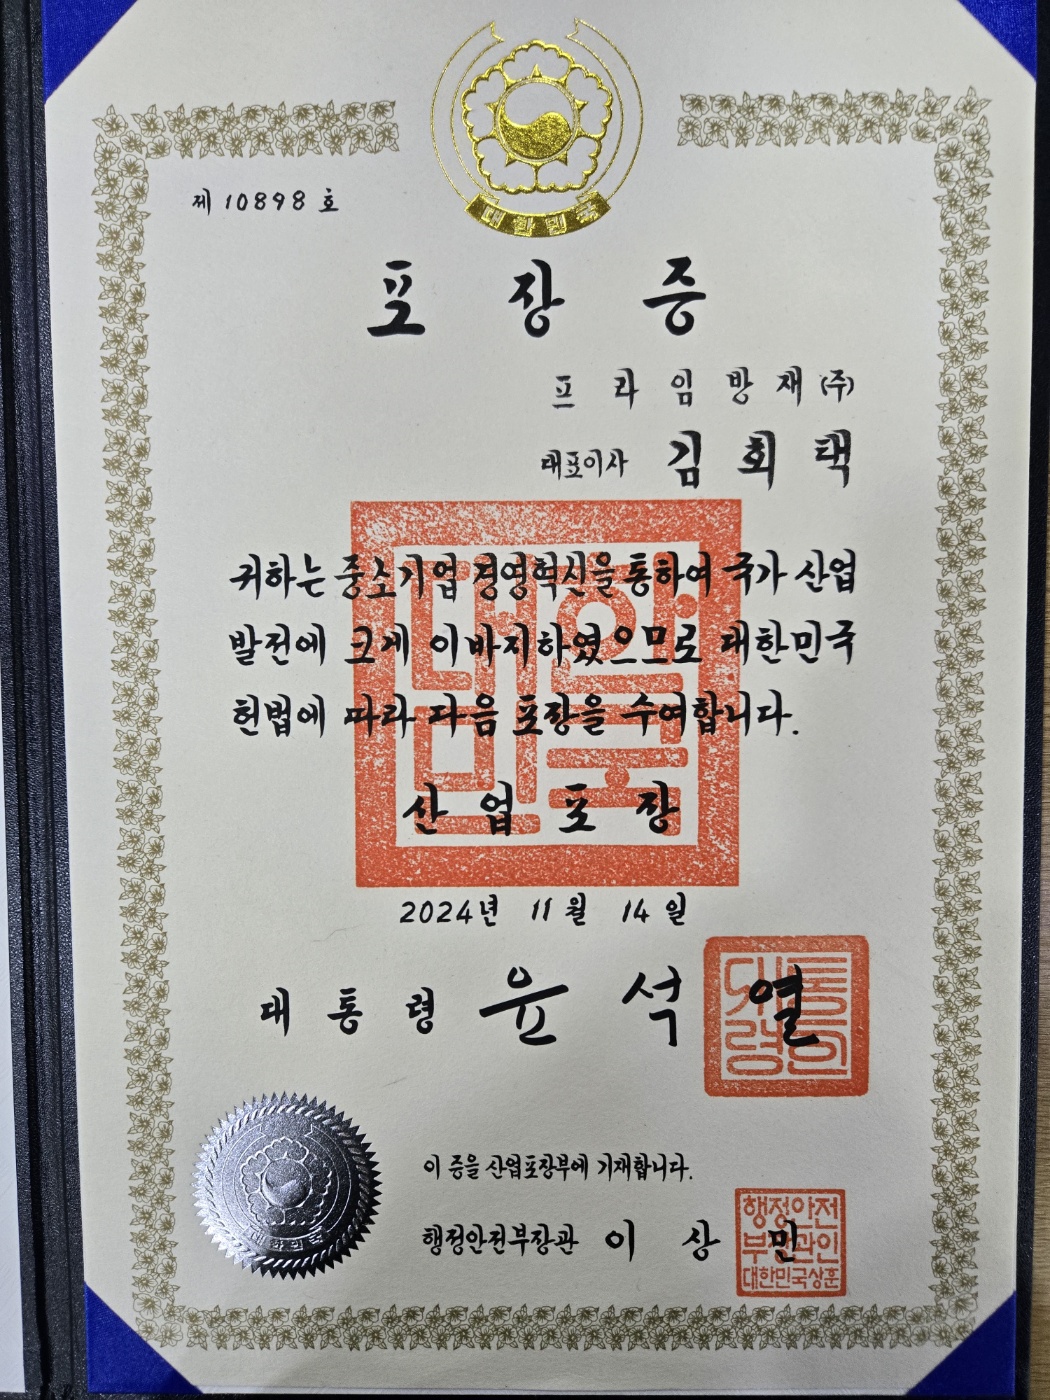 대한민국
제 10898 호
포 장 증
프 라 임 방 재 (주)
대표이사 김 회 택
귀하는 중소기업 경영혁신을 통하여 국가 산업
발전에 크게 이바지하였으므로 대한민국
헌법에 따라 다음 포장을 수여합니다.
산 업 포 장
2024년 11 월 14 일
대 통 령 윤 석 열
대통령의인
이 증을 산업포장부에 기재합니다.
행정안전부장관 이 상 민
행정안전
부장관인
대한민국상훈
대한민국